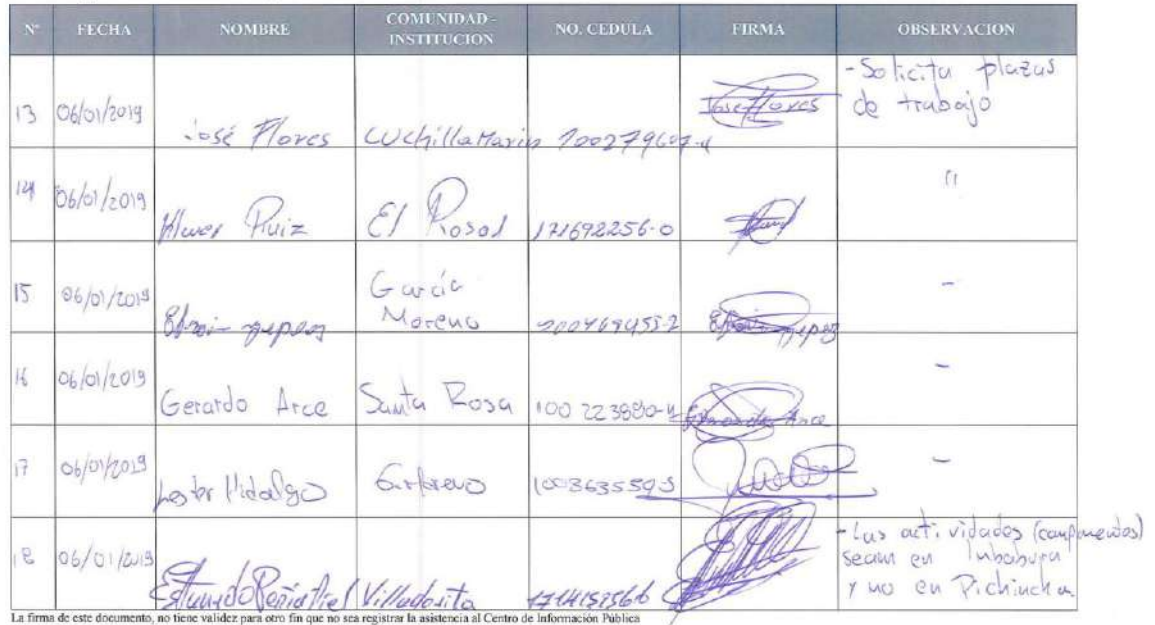 N° FECHA NOMBRE COMUNIDAD - INSTITUCION NO. CEDULA FIRMA OBSERVACION
13 06/01/2019 José Flores Cuchilla Marin 100279607-4 José Flores - Solicita plazas de trabajo
14 06/01/2019 Ruiz El Rosal 171692256-0 "
15 06/01/2019 Efrain yepez García Moreno 100469453-2 Efrain yepez -
16 06/01/2019 Gerardo Arce Santa Rosa 100 223880-4 Gerardo Arce -
17 06/01/2019 Lester Hidalgo 100363559-5 -
18 06/01/2019 Villadorita - Las actividades (campamentos) sean en Imbabura y no en Pichincha.
La firma de este documento, no tiene validez para otro fin que no sea registrar la asistencia al Centro de Información Pública